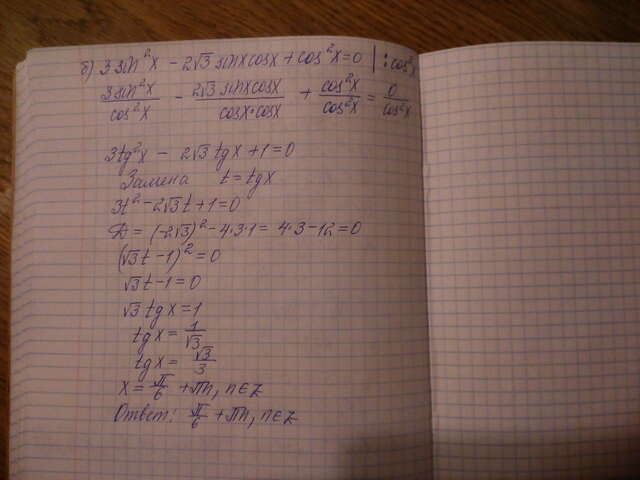 б) 3 sin²x − 2√3 sinx cosx + cos²x = 0 | : cos²x
3 sin²x/cos²x − 2√3 sinx cosx/cosx·cosx + cos²x/cos²x = 0/cos²x
3tg²x − 2√3 tgx + 1 = 0
Замена t = tgx
3t² − 2√3t + 1 = 0
D = (−2√3)² − 4·3·1 = 4·3 − 12 = 0
(√3t − 1)² = 0
√3t − 1 = 0
√3 tgx = 1
tgx = 1/√3
tgx = √3/3
x = π/6 + πn, n∈Z
Ответ: π/6 + πn, n∈Z